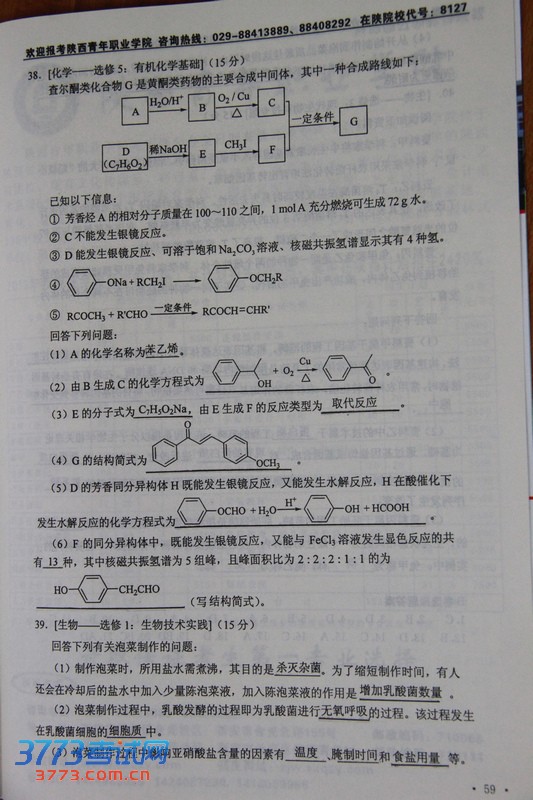 欢迎报考陕西青年职业学院 咨询热线：029-88413889、88408292 在陕院校代号：8127
38. [化学——选修5：有机化学基础]（15分）
查尔酮类化合物G是黄酮类药物的主要合成中间体，其中一种合成路线如下：
A H₂O/H⁺ B O₂/Cu △ C
一定条件 G
D (C₇H₆O₂) 稀NaOH E CH₃I F
已知以下信息：
① 芳香烃A的相对分子质量在100～110之间，1 mol A充分燃烧可生成72 g水。
② C不能发生银镜反应。
③ D能发生银镜反应、可溶于饱和Na₂CO₃溶液、核磁共振氢谱显示其有4种氢。
④ ONa + RCH₂I OCH₂R
⑤ RCOCH₃ + R'CHO 一定条件 RCOCH=CHR'
回答下列问题：
（1）A的化学名称为苯乙烯。
（2）由B生成C的化学方程式为 OH + O₂ Cu △ O 。
（3）E的分子式为 C₇H₅O₂Na，由E生成F的反应类型为 取代反应 。
（4）G的结构简式为 O OCH₃ 。
（5）D的芳香同分异构体H既能发生银镜反应，又能发生水解反应，H在酸催化下
发生水解反应的化学方程式为 OCHO + H₂O H⁺ OH + HCOOH 。
（6）F的同分异构体中，既能发生银镜反应，又能与FeCl₃溶液发生显色反应的共
有 13 种，其中核磁共振氢谱为5组峰，且峰面积比为2:2:2:1:1的为
HO CH₂CHO （写结构简式）。
39. [生物——选修1：生物技术实践]（15分）
回答下列有关泡菜制作的问题：
（1）制作泡菜时，所用盐水需煮沸，其目的是杀灭杂菌。为了缩短制作时间，有人
还会在冷却后的盐水中加入少量陈泡菜液，加入陈泡菜液的作用是 增加乳酸菌数量 。
（2）泡菜制作过程中，乳酸发酵的过程即为乳酸菌进行无氧呼吸的过程。该过程发生
在乳酸菌细胞的细胞质中。
泡菜制作过程中影响亚硝酸盐含量的因素有 温度 、腌制时间和 食盐用量 等。
3773考试网
3773.com.cn
· 59 ·